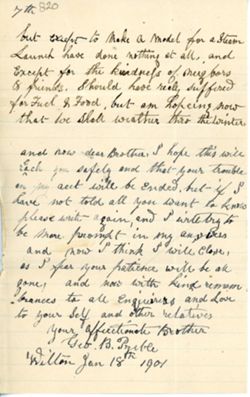 7th 820
but except to Make a Model for a Steam
Launch have done nothing at all, and
Except for the Kindness of Neighbors
& friends. Should have realy suffered
for Fuel & Food, but am hopeing now
that we Shall weather thro the winter

and now dear Brother, I hope this will
reach you safely and that your trouble
on my acct will be Ended, but if I
have not told all you want to know
please write again and I will try to
be More prompt in my answers
and now I think I will Close,
as I fear your patience will be all
gone, and now with Kind remem
brances to all Enquirers and Love
to your Self and other relatives
Your affectionate Brother
Geo. B.
Wilton Jan 18th 1901